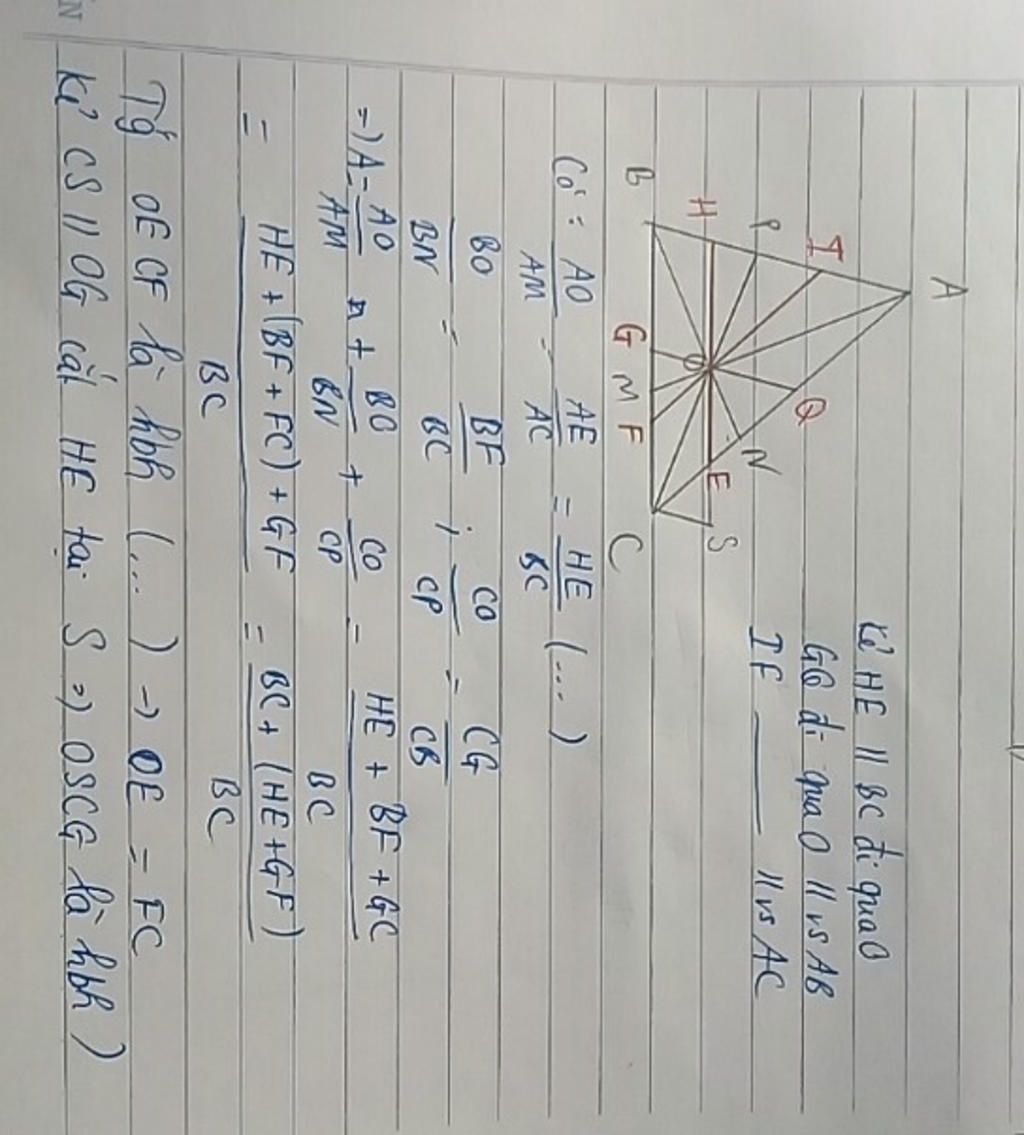 A
I
P
H
B
Q
N
E
S
O
G
M
F
C
Kẻ HE // BC đi qua O
GQ đi qua O // vs AB
IF ——— // vs AC
Có: AO/AM = AE/AC = HE/BC (...)
BO/BN = BF/BC ; CO/CP = CG/CB
=) A = AO/AM + BO/BN + CO/CP = HE + BF + GC/BC
= HE + (BF + FC) + GF/BC = BC + (HE + GF)/BC
Tg OECF là hbh (...) -> OE = FC
Kẻ CS // OG cắt HE tại S => OSCG là hbh )